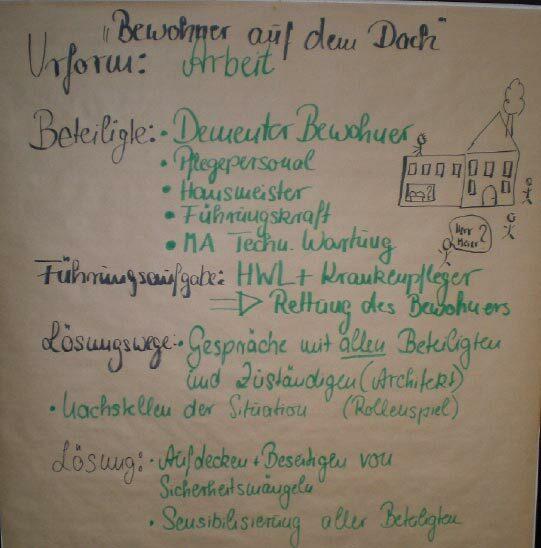 "Bewohner auf dem Dach"
Urform: Arbeit
Beteiligte: • Dementer Bewohner
• Pflegepersonal
• Hausmeister
• Führungskraft
• MA Techn. Wartung
Herr
Meier?
Führungsaufgabe: HWL + Krankenpfleger
⇒ Rettung des Bewohners
Lösungswege: • Gespräche mit allen Beteiligten
und Zuständigen (Architekt)
• Nachstellen der Situation (Rollenspiel)
Lösung: • Aufdecken + Beseitigen von
Sicherheitsmängeln
• Sensibilisierung aller Beteiligten